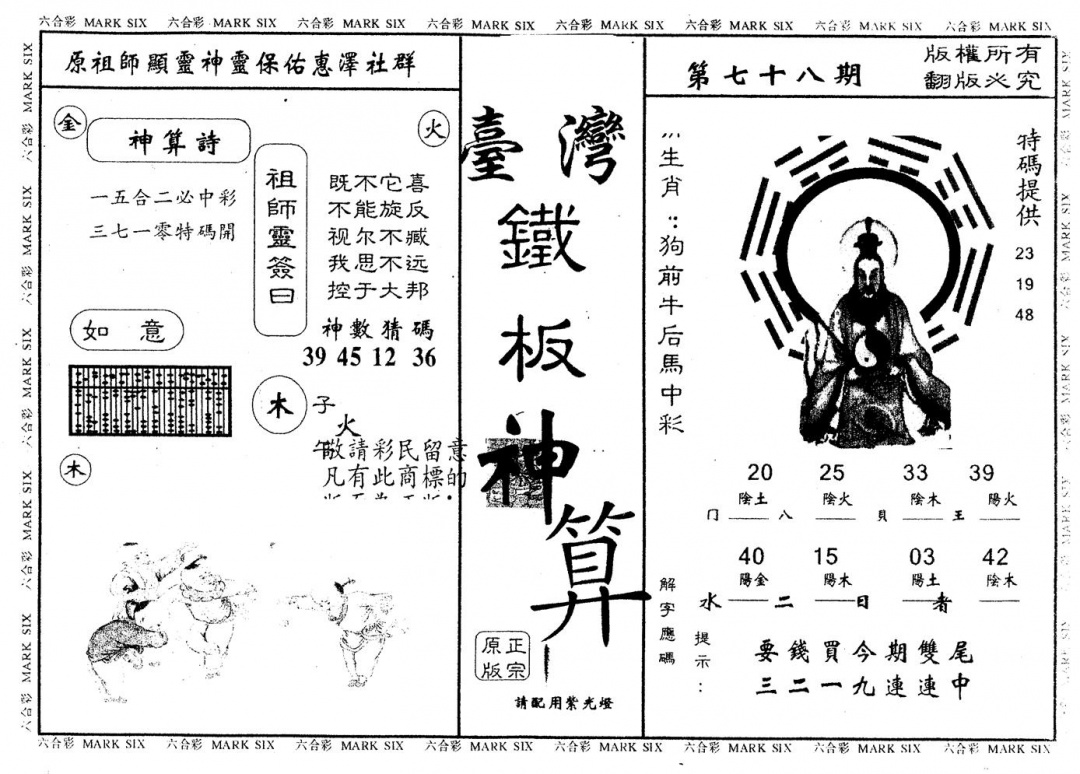 六合彩 MARK SIX 六合彩 MARK SIX 六合彩 MARK SIX 六合彩 MARK SIX 六合彩 MARK SIX 六合彩 MARK SIX 六合彩 MARK SIX 六合彩 MARK SIX
原祖師顯靈神靈保佑惠澤社群
金
神算詩
火
一五合二必中彩
三七一零特碼開
祖師靈簽曰
既不它喜
不能旋反
视尔不臧
我思不远
控于大邦
神數猜碼
39 45 12 36
如意
木
子
火
午
敬請彩民留意
凡有此商標的
木
臺灣
鐵
板
神
算
正宗
原版
請配用紫光燈
第七十八期
版權所有
翻版必究
生肖：狗前牛后馬中彩
特碼提供
23
19
48
20 25 33 39
陰土 陰火 陰木 陽火
门 八 貝 王
40 15 03 42
陽金 陽木 陽土 陰木
水 二 日 者
解字應碼
提示：
要錢買今期雙尾
三二一九連連中
六合彩 MARK SIX 六合彩 MARK SIX 六合彩 MARK SIX 六合彩 MARK SIX 六合彩 MARK SIX 六合彩 MARK SIX 六合彩 MARK SIX 六合彩 MARK SIX